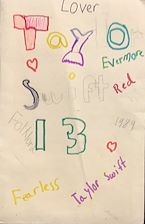 Lover
TayO
Evermore
Swift
Red
Folklore
13
1989
Fearless
Taylor Swift